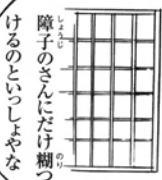 障子のさんにだけ糊つ
けるのといっしょやな